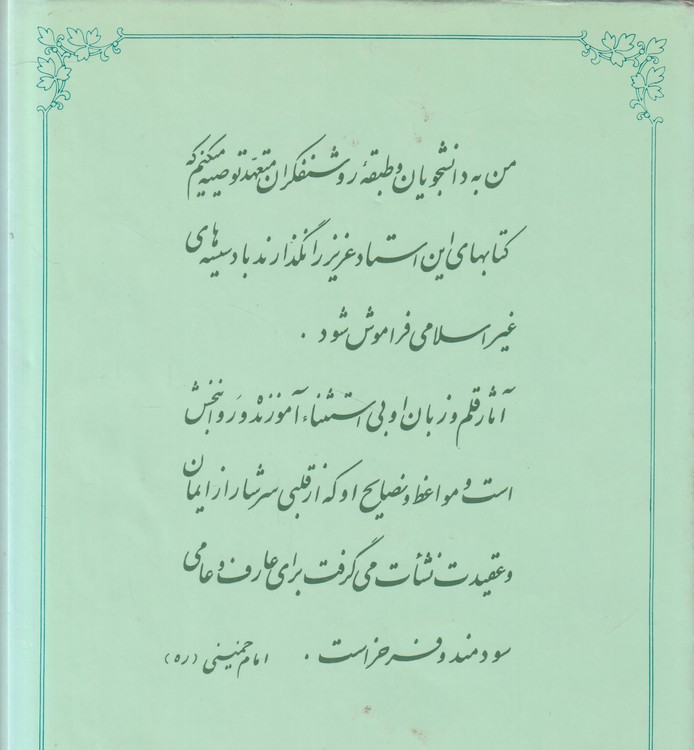 من به دانشجویان و طبقهٔ روشنفکران متعهد توصیه میکنم که
کتابهای این استاد عزیز را نگذارند با دسیسه های
غیر اسلامی فراموش شود .
آثار قلم و زبان او بی استثناء آموزنده و روانبخش
است و مواعظ و نصایح او که از قلبی سرشار از ایمان
و عقیدت نشأت می گرفت برای عارف و عامی
سودمند و فرحزاست . امام خمینی (ره)